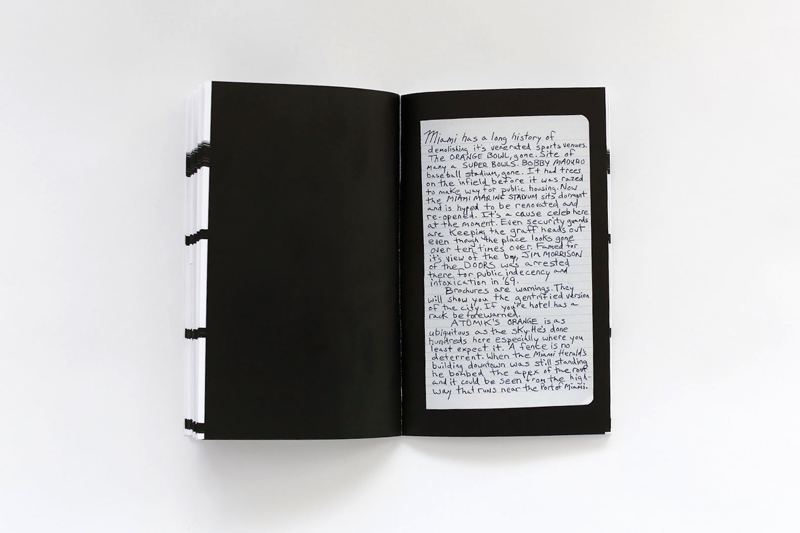 Miami has a long history of
demolishing it's venerated sports venues.
The ORANGE BOWL, gone. Site of
many a SUPER BOWLS. BOBBY MADURO
baseball stadium, gone. It had trees
on the infield before it was razed
to make way for public housing. Now
the MIAMI MARINE STADIUM sits dormant
and is hyped to be renovated and
re-opened. It's a cause celeb here
at the moment. Even security guards
are keeping the graff heads out
even though the place looks gone
over ten times over. Famed for
it's view of the bay, JIM MORRISON
of the DOORS was arrested
there for public indecency and
intoxication in '69.
Brochures are warnings. They
will show you the gentrified version
of the city. If you're hotel has a
rack be forewarned.
ATOMIK'S ORANGE is as
ubiquitous as the sky. He's done
hundreds here especially where you
least expect it. A fence is no
deterrent. When the Miami Herald's
building downtown was still standing
he bombed the apex of the roof
and it could be seen from the high-
way that runs near the Port of Miami.